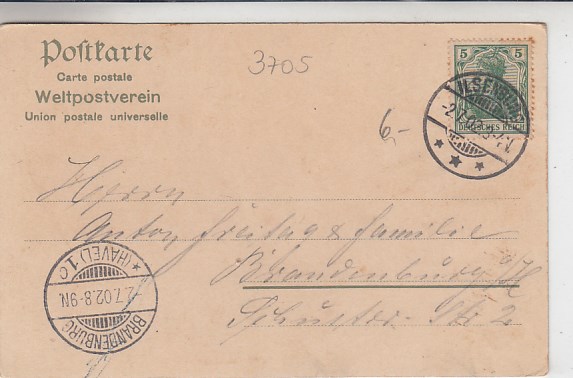 Postkarte
Carte postale
Weltpostverein
Union postale universelle
3705
6,-
5 5
DEUTSCHES REICH
ILSENBURG
-2.7.02
Herrn
Anton Freitag & Familie
Brandenburg a/H
Schuster-Str. 2
BRANDENBURG
2.7.02.8-9N.
* (HAVEL) 1 c